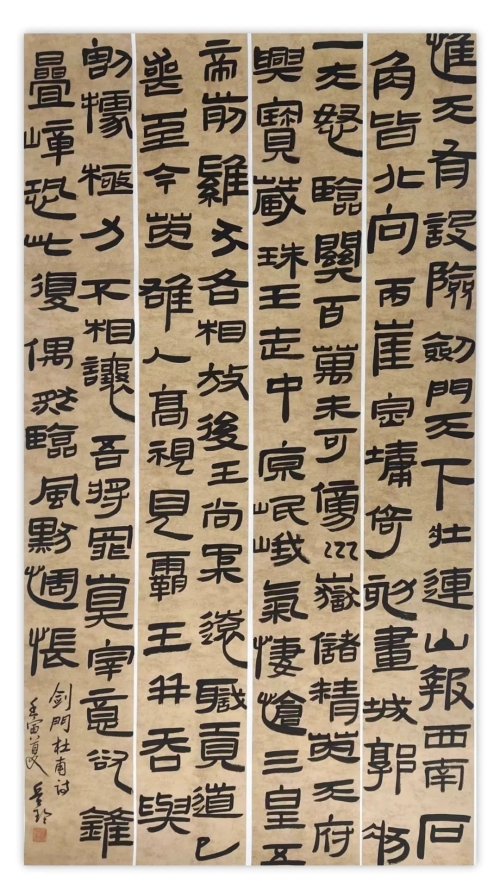 惟天有設險劍門天下壯連山報西南石
角皆北向兩崖崇墉倚刻畫城郭狀
一夫怒臨關百萬未可傍川嶽儲精英天府
興寶藏珠玉走中原岷峨氣悽愴三皇五
帝前雞犬各相放後王尚柔遠職貢道已
喪至今英雄人高視見霸王並吞與
割據極力不相讓吾將罪真宰意欲鏟
疊嶂恐此復偶然臨風默惆悵
剑門杜甫诗
壬寅